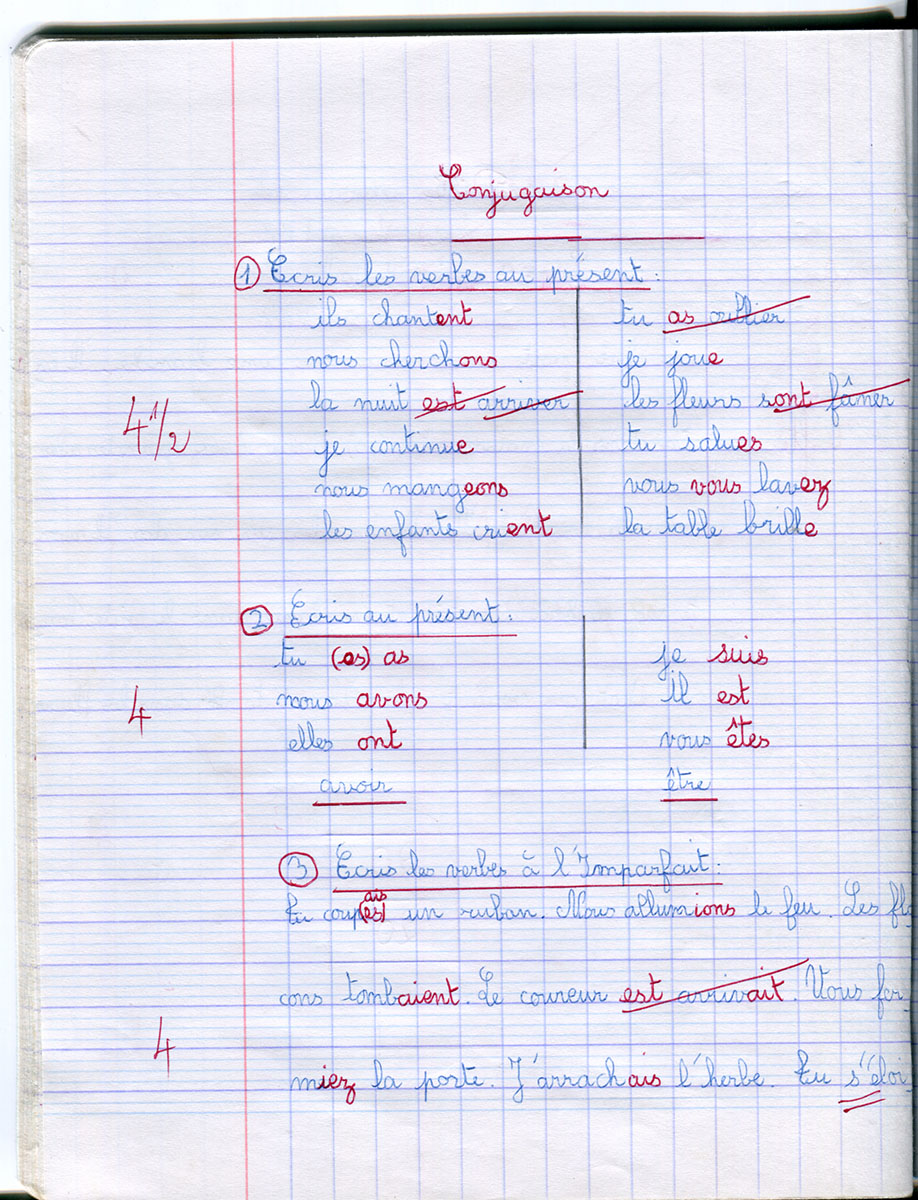 Conjugaison
① Ecris les verbes au présent :
ils chantent
nous cherchons
la nuit est arriver
je continue
nous mangeons
les enfants crient
tu as oublier
je joue
les fleurs sont fâner
tu salues
vous vous lavez
la table brille
4 1/2
② Ecris au présent.
tu (es) as
nous avons
elles ont
avoir
je suis
il est
vous êtes
être
4
③ Ecris les verbes à l'Imparfait :
tu coup(es) ais un ruban. Nous allumions le feu. Les flo
cons tombaient. Le coureur est arrivait. Vous fer
miez la porte. J'arrachais l'herbe. Tu s'éloi
4